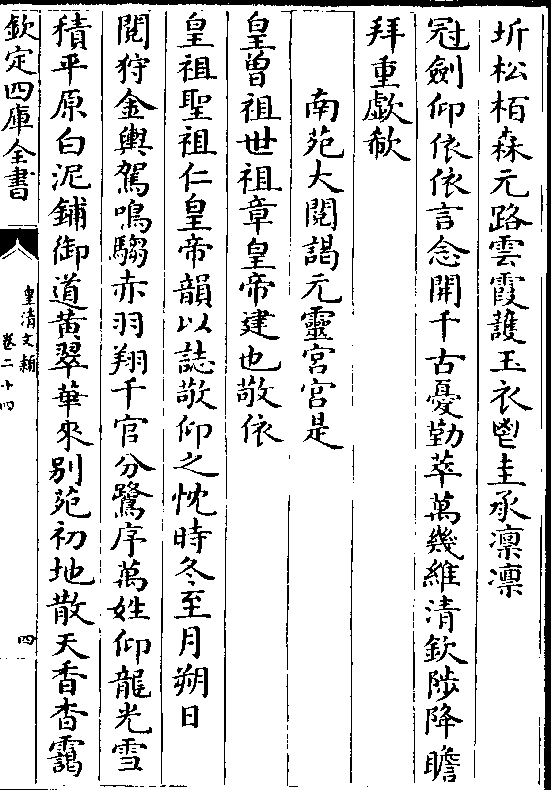 圻松栢森元路雲霞護玉衣鬯圭承凛凛
冠劍仰依依言念開千古憂勤萃萬幾維清欽陟降瞻
拜重歔欷
南苑大閱謁元靈宮宮是
皇曽祖世祖章皇帝建也敬依
皇祖聖祖仁皇帝韻以誌敬仰之忱時冬至月朔日
閱狩金輿駕鳴騶赤羽翔千官分鷺序萬姓仰龍光雪
積平原白泥鋪御道黄翠華來别苑初地散天香杳靄
欽定四庫全書
皇清文穎
卷二十四
四